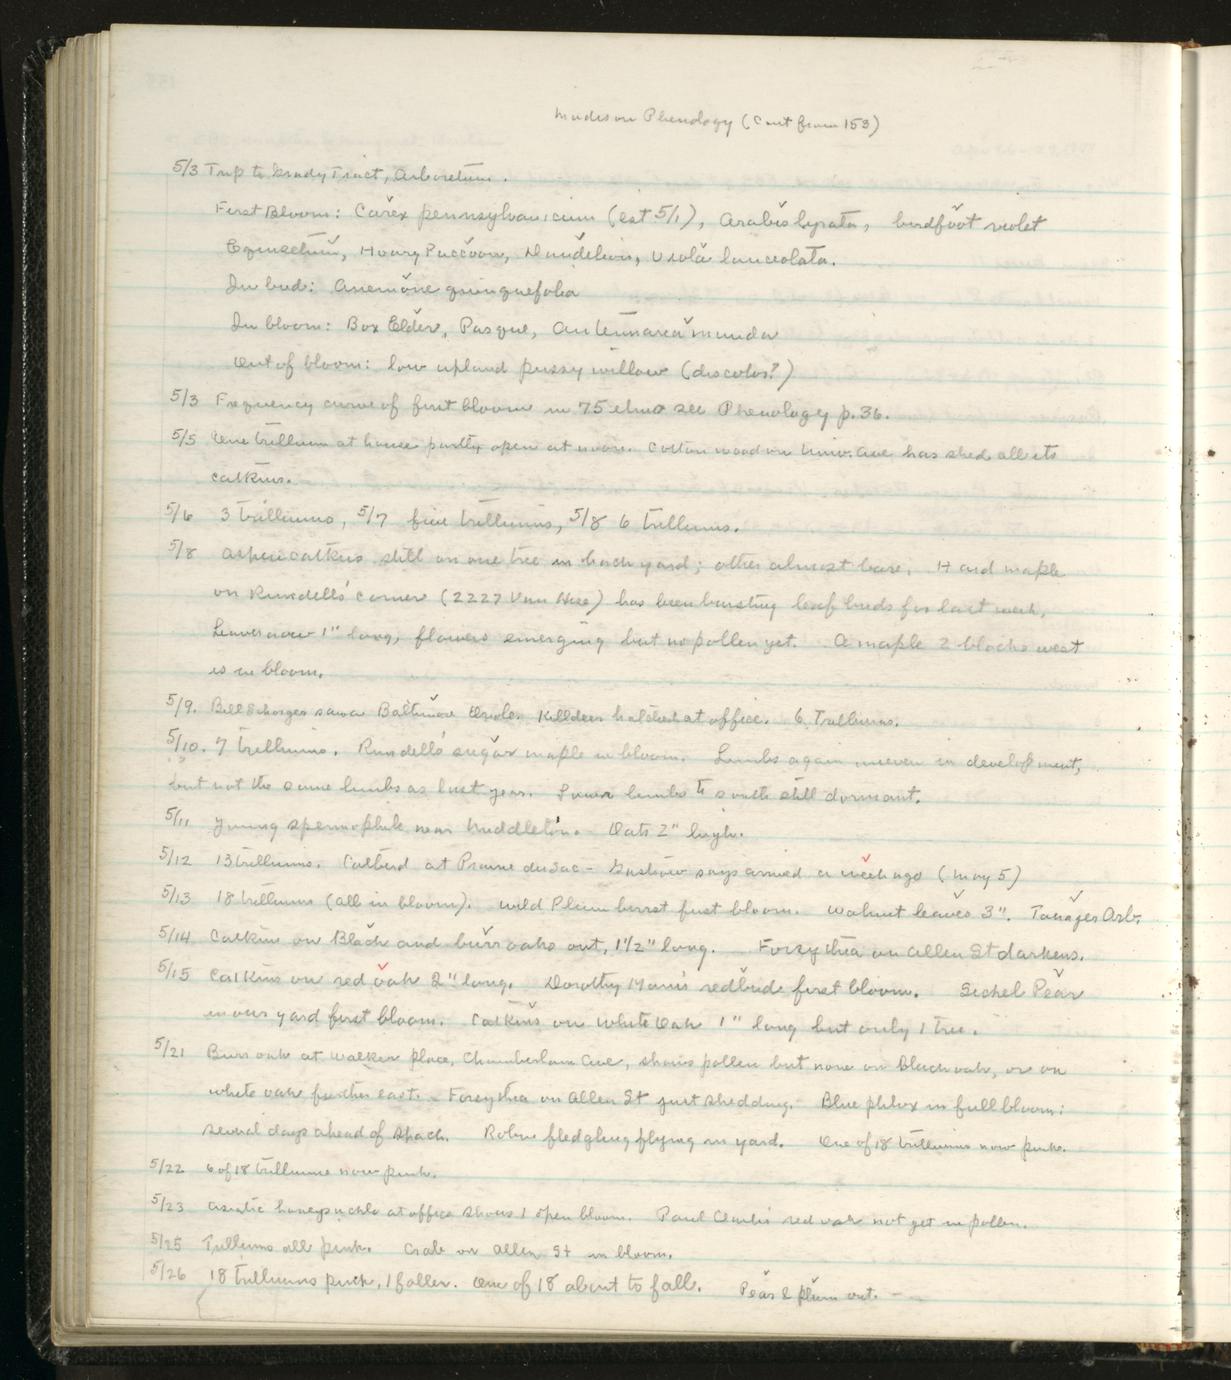 Madison Phenology (Cont from 153)
5/3 Trip to Grady Tract, Arboretum.
First Bloom: Carex pennsylvanicum (est 5/1), Arabis lyrata, birdfoot violet
Equisetum, Hoary Puccoon, Dandelion, Viola lanceolata.
In bud: Anemone quinquefolia
In bloom: Box Elder, Pasque, Antennaria munda
Out of bloom: low upland pussy willow (discolor?)
5/3 Frequency curve of first bloom in 75 elms see Phenology p. 36.
5/5 One trillium at house partly open at noon. Cottonwood on Univ. Ave has shed all its
catkins.
5/6 3 trilliums, 5/7 five trilliums, 5/8 6 trilliums.
5/8 Aspen catkins still on one tree in back yard; other almost bare. Hard maple
on Rundell's corner (2227 Van Hise) has been bursting leaf buds for last week,
Leaves now 1" long, flowers emerging but no pollen yet. A maple 2 blocks west
is in bloom.
5/9. Bill Schorger saw Baltimore Oriole. Killdeer hatched at office. 6 Trilliums.
5/10. 7 trilliums. Rundell's sugar maple in bloom. Limbs again uneven in development,
but not the same limbs as last year. Lower limbs to south still dormant.
5/11 Young spermophile near Middleton. Oats 2" high.
5/12 13 trilliums. Catbird at Prairie du Sac - says arrived a week ago (May 5)
5/13 18 trilliums (all in bloom). Wild Plum first bloom. Walnut leaves 3". Tanager Arb.
5/14 Catkins on Black and burr oaks out, 1 1/2" long. Forsythia on Allen St darkens.
5/15 Catkins on red oak 2" long. Dorothy redbud first bloom. Sechel Pear
in our yard first bloom. Catkins on White Oak 1" long but only 1 tree.
5/21 Burr oak at Walker place, Chamberlain Ave, shows pollen but none on Black oak, or on
white oak further east. Forsythia on Allen St just shedding. Blue phlox in full bloom:
several days ahead of Shack. Robin fledgling flying in yard. One of 18 trilliums now pink.
5/22 6 of 18 trilliums now pink.
5/23 Asiatic honeysuckle at office shows 1 open bloom. Paul red oak not yet in pollen.
5/25 Trilliums all pink. Crab on Allen St in bloom.
5/26 18 trilliums pink, 1 fallen. One of 18 about to fall. Pear & plum out.